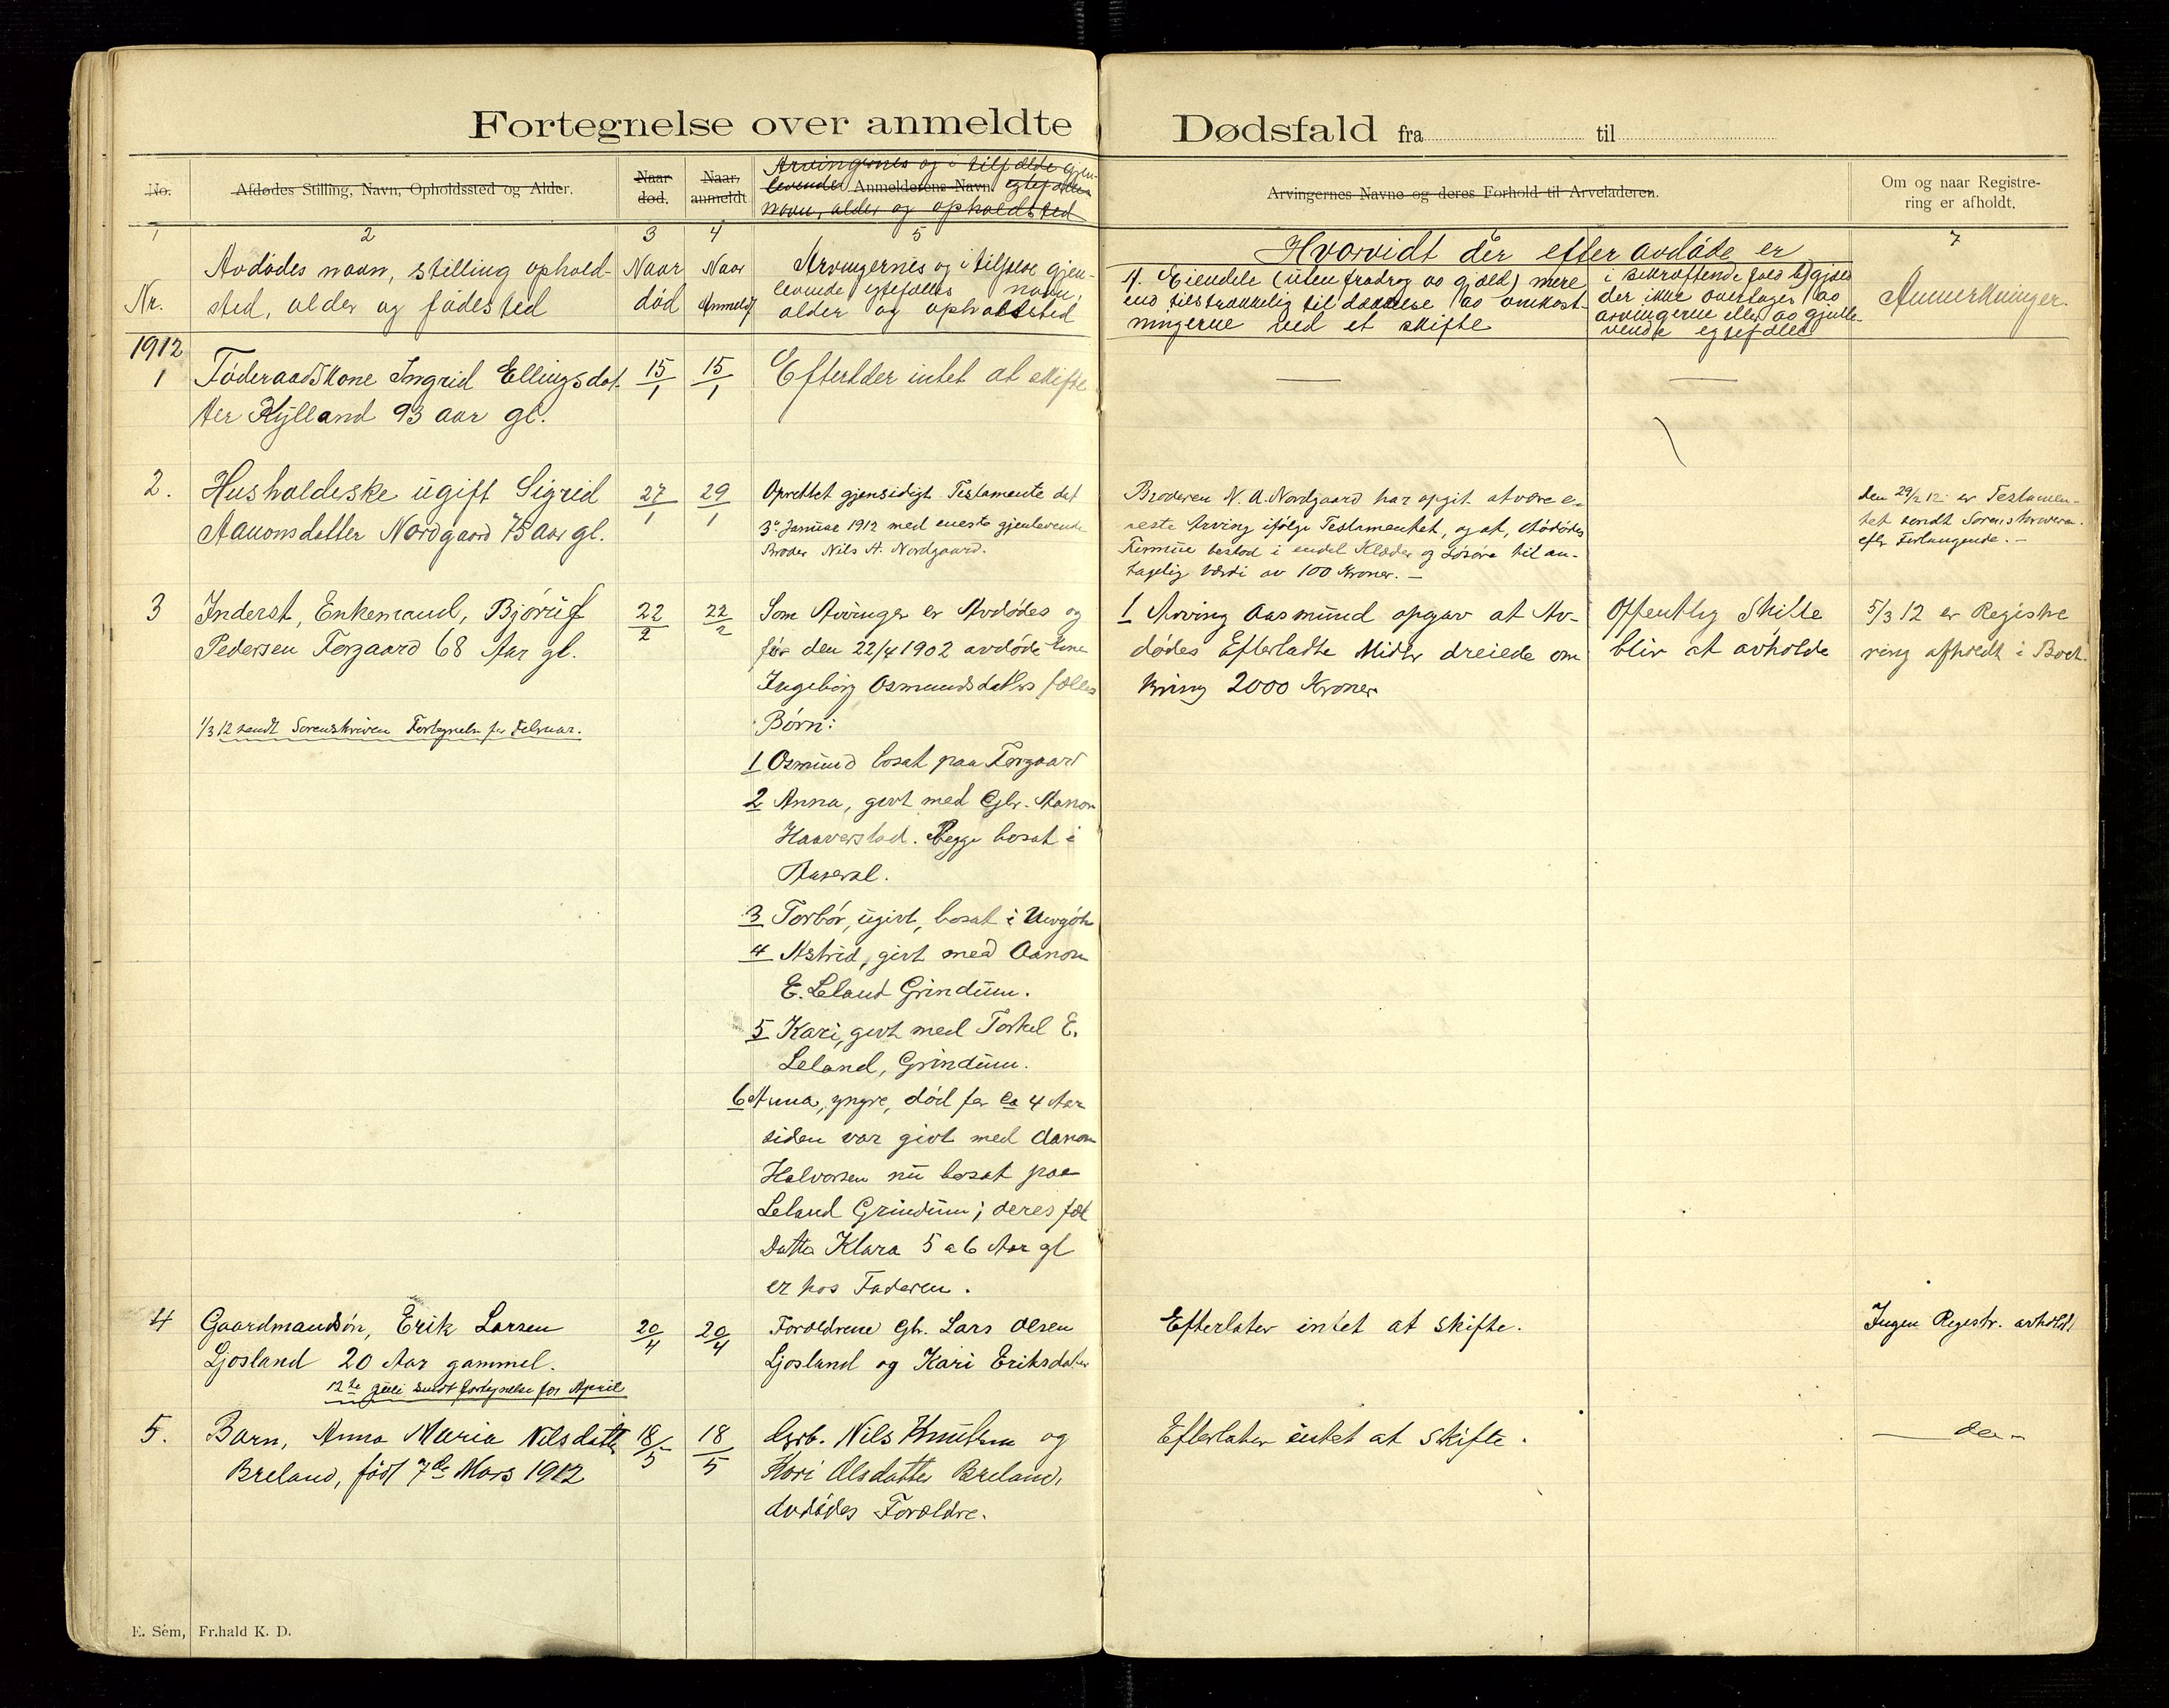 Fortegnelse over anmeldte Dødsfald fra til
No.
Afdødes Stilling, Navn, Opholdssted og Alder.
Naar død.
Naar anmeldt
Arvingernes og i tilfælde gjen-
levende Anmelderens Navn. egtefælles
navn, alder og opholdssted
Arvingernes Navne og deres Forhold til Arveladeren.
Om og naar Registre-
ring er afholdt.
1 2 3 4 5 6 7
Nr.
Avdødes navn, stilling ophold-
sted, alder og fødested
Naar
død
Naar
Anmeldt
Arvingernes og i tilfælde gjen-
levende egtefælles navn,
alder og opholdssted
Hvorvidt der efter avdøde er
1. Eiendele (uten fradrag av gjæld) mere
end tilstrækkelig til dækkelse av omkost-
ningerne ved et skifte
i bekræftende fald 2) gjæld
der ikke overtages av
arvingerne eller av gjenle-
vende egtefælle
Anmerkninger.
1912
1
Føderaadskone Ingrid Ellingsdat-
ter Kylland 93 aar gl.
15/1
15/1
Efterlader intet at skifte
—
—
2.
Husholderske ugift Sigrid
Aanonsdatter Nordgaard 75 aar gl.
27/1
29/1
Oprettet gjensidigt Testamente dat
3. Januar 1912 med eneste gjenlevende
Broder Nils A. Nordgaard.
Broderen N. A. Nordgaard har opgit at være e-
neste Arving ifølge Testamentet, og at, Avdødes
Formue bestod i endel Klæder og Løsøre til an-
tagelig Værdi av 100 Kroner. —
den 29/2 12 er Testamen-
tet sendt Sorenskriveren
efter Forlangende. —
3
Inderst, Enkemand, Bjørulf
Pedersen Forgaard 68 Aar gl.
22/2
22/2
1/3 12 sendt Sorenskriveren Fortegnelse for Februar.
Som Arvinger er Avdødes og
før den 22/4 1902 avdøde Kone
Ingebørg Osmundsdatters fælles
Børn:
1 Osmund bosat paa Forgaard
2 Anna, givt med Gbr. Aanon
Haaverstad. Begge bosat i
Aaseral.
3 Torbør, ugivt, bosat i
4 Astrid, givt med Aanon
E. Leland Grindum.
5 Kari, givt med Torkel E.
Leland, Grindum.
6 Anna, yngre, død for ca 4 Aar
siden var givt med Aanon
Halvorsen nu bosat paa
Leland Grindum; deres fæl
Datter Klara 5 a 6 Aar gl
er hos Faderen.
1 Arving Aasmund opgav at Av-
dødes Efterladte Midler dreiede om
kring 2000 Kroner
Offentlig Skifte
blir at avholde
5/3 12 er Registre
ring afholdt i Boet.
4
Gaardmandsøn, Erik Larsen
Ljosland 20 Aar gammel.
20/4
20/4
Forældrene Gbr. Lars Olsen
Ljosland og Kari Eriksdatter
Efterlater intet at skifte.
Ingen Registr. avholdt
12te juli sendt fortegnelse for April
5.
Barn, Anna Maria Nilsdatter
Breland, født 7de Mars 1912
18/5
18/5
Grb. Nils Knutsen og
Kari Olsdatter Breland,
Avdødes Forældre.
Efterlater intet at skifte.
— do —
E. Sem, Fr.hald K. D.